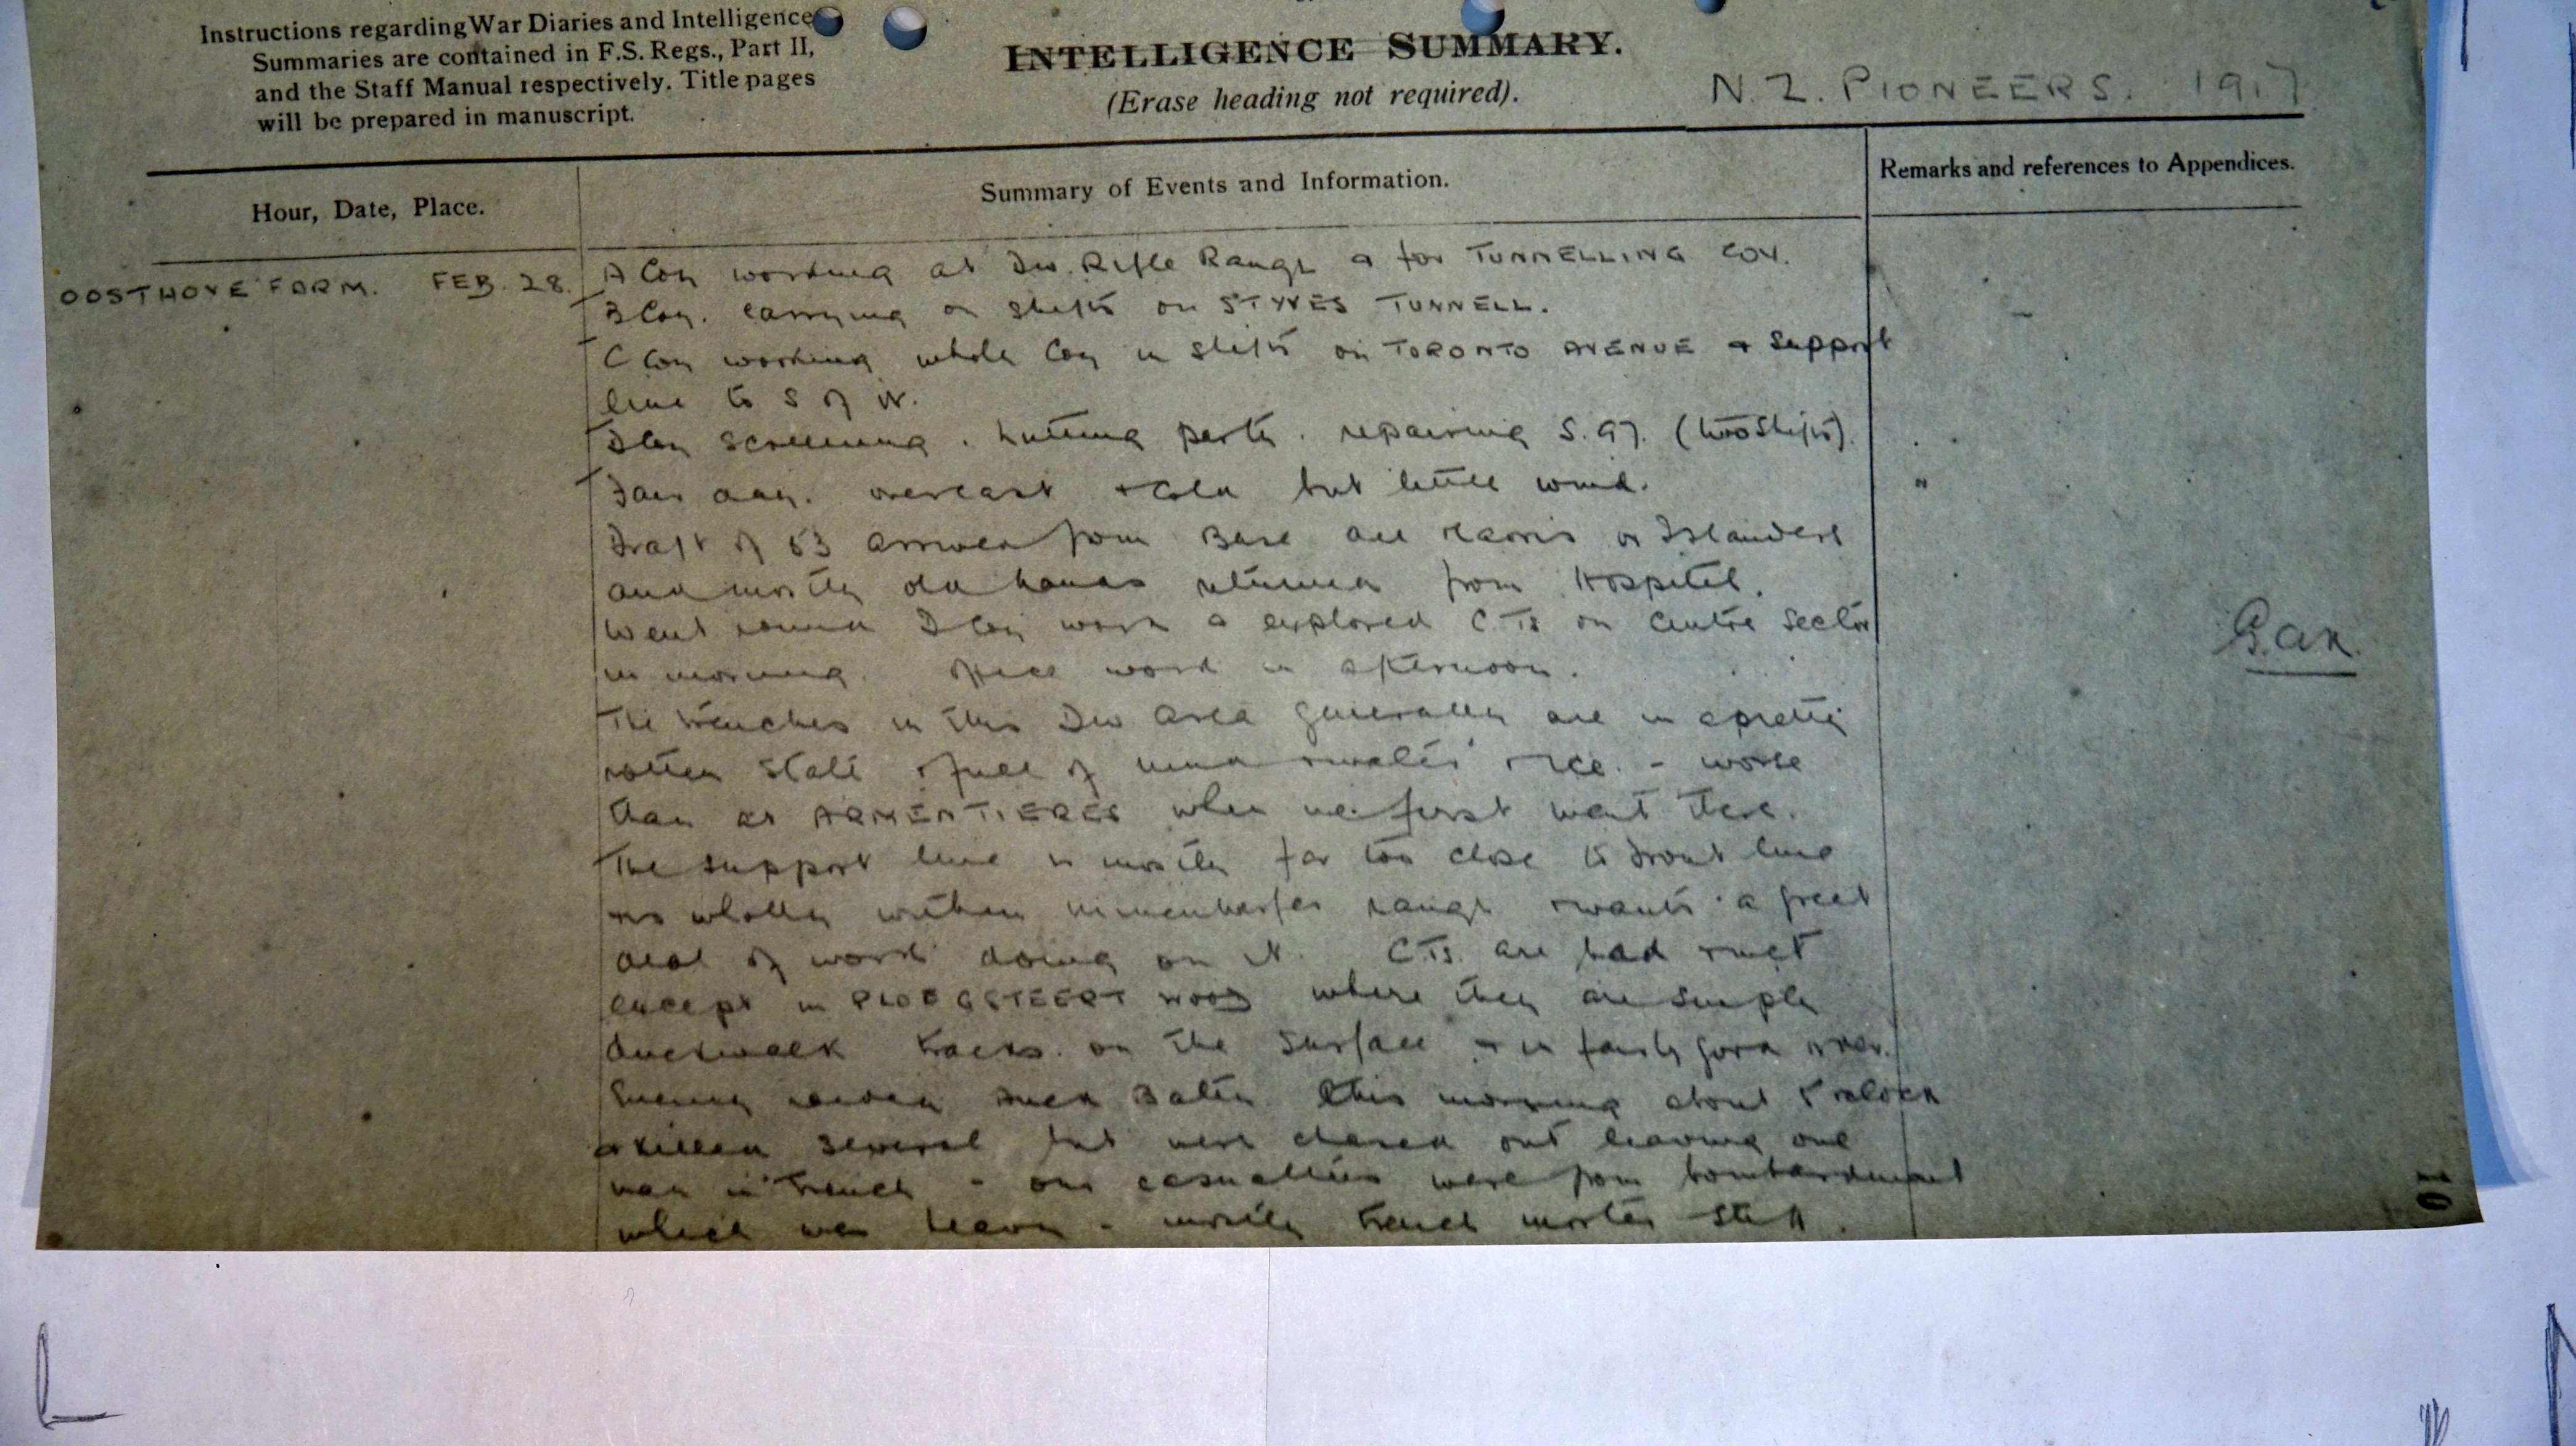 Instructions regarding War Diaries and Intelligence
Summaries are contained in F.S. Regs., Part II,
and the Staff Manual respectively. Title pages
will be prepared in manuscript.
INTELLIGENCE SUMMARY.
(Erase heading not required).
N. Z. PIONEERS. 1917.
Hour, Date, Place.
Summary of Events and Information.
Remarks and references to Appendices.
OOSTHOVE FARM. FEB. 28.
A Coy working at Div. Rifle Range & for TUNNELLING COY.
B Coy. carrying on shifts on STYVES TUNNELL.
C Coy working whole Coy in shifts on TORONTO AVENUE & Support
line to S of it.
D Coy screening. hutting party. repairing S. (two shifts).
Fair day. overcast & cold but little wind.
Draft of 53 arrived from Base all Maoris or Islanders
and mostly old hands returned from Hospital.
Went round D Coy work & explored C.Ts on Centre Sector
in morning. Office work in afternoon.
The trenches in this Div area generally are in a pretty
rotten state & full of mud & water & ice. - worse
than at ARMENTIERES when we first went there.
The support line is mostly far too close to front line
& is wholly within minenwerfer range & wants a great
deal of work doing on it. C.Ts. are bad & wet
except in PLOEGSTEERT WOOD where they are simply
duckwalk tracks on the surface & in fairly good order.
Enemy raided Batn this morning about 5 o'clock
& killed several but were chased out leaving one
man in trench - our casualties were from bombardment
which was heavy - mostly trench mortar stuff.
10